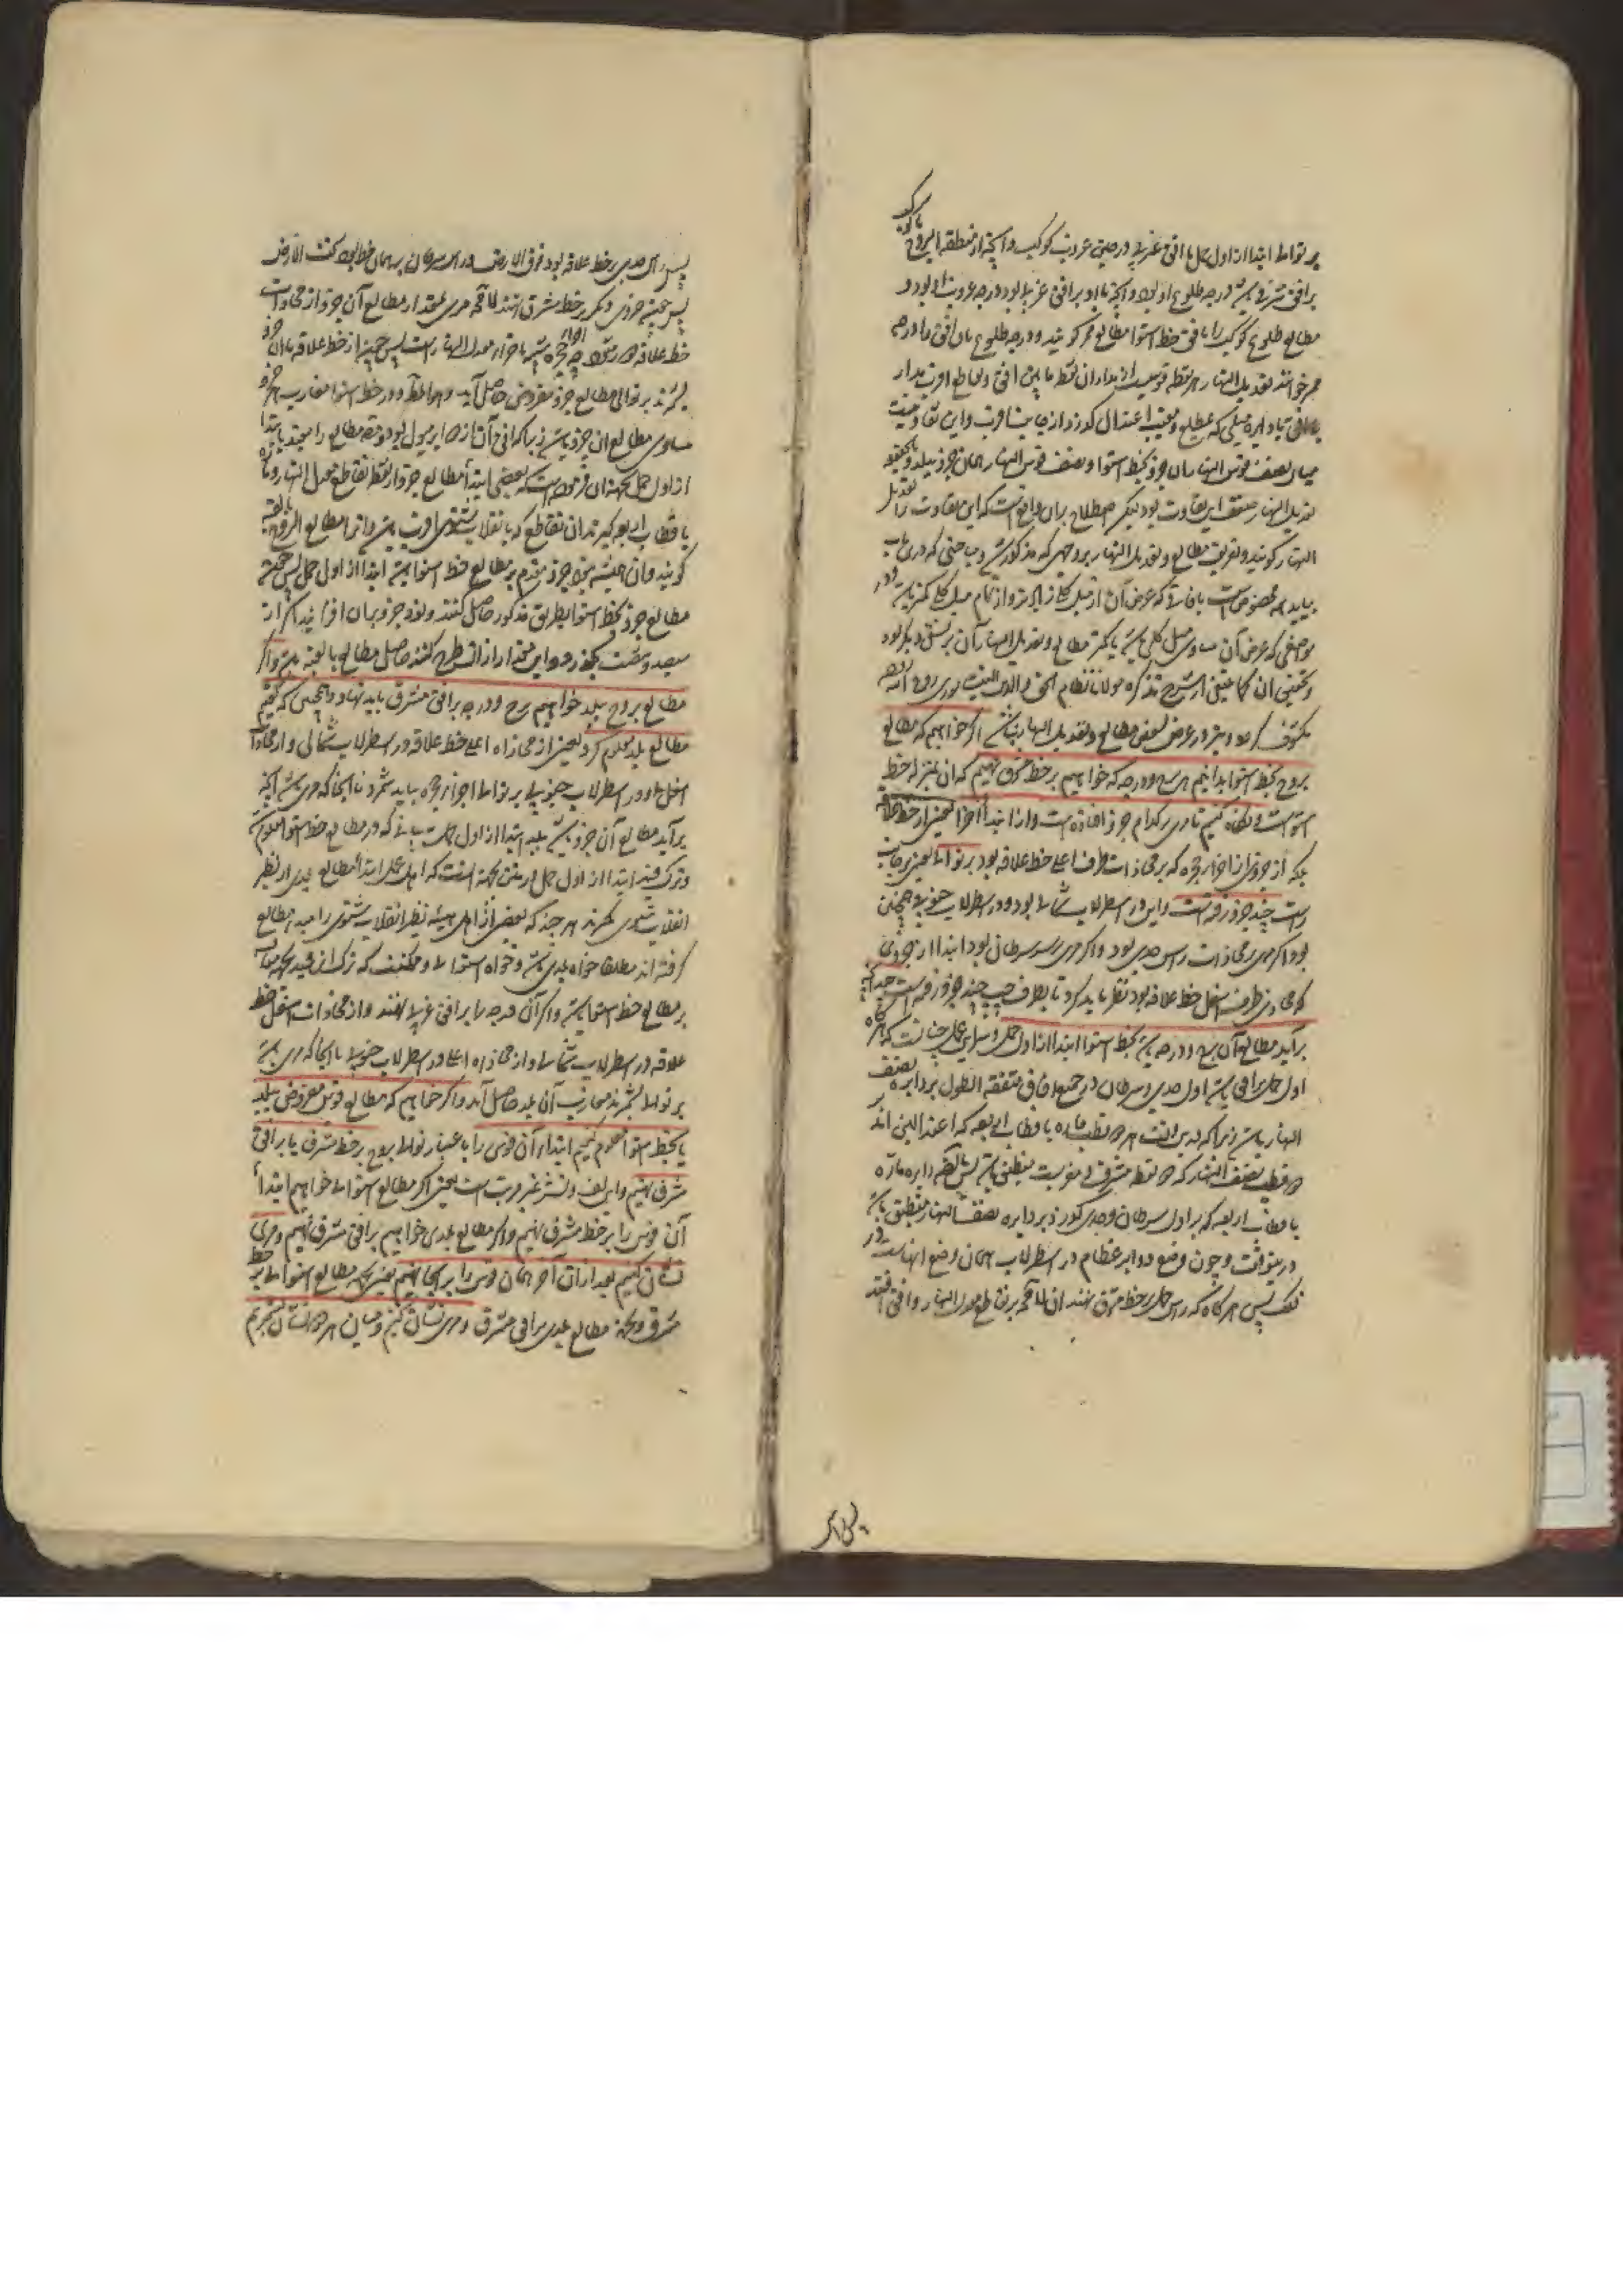 بر توالط ابتدا از اول حمل با افق غربی در حین غروب کوکب و آنچه از منطقة البروج با کوکب
بر افق شرقی باشد درجه طلوع او بود و آنچه با او بر افق غربی بود درجه غروب او بود و
مطالع طلوع کوکب را بافق خط استوا مطالع ممر کویند و درجه طلوع بآن افق را درجه
ممر خوانند تعدیل النهار هر نقطه قوسیست از مدار آن نقطه ما بین افق و تقاطع اقرب مدار
میان نصف قوس النهار آن جزو بخط استوا و نصف قوس النهار همان جزو ببلد و بالحقیقه
تعدیل النهار نصف این تفاوت بود لیکن اصطلاح بران واقعست که این تفاوت را تعدیل
النهار کویند و تعریف مطالع و تعدیل النهار بر وجهی که مذکور شد و مباحثی که درین باب
بیاید همه مخصوص است بآفاقی که عرض آن از میل کلی زیاده تر و از تمام میل کلی کمتر باشد و در
مواضعی که عرض آن مساوی میل کلی باشد یا کمتر مطالع و تعدیل النهار آن بر نسق دیگر بود
و تحقیق آن کما ینبغی از شرح تذکره مولانا نظام الحق والدین
اگر خواهیم که مطالع
بروج بخط استوا بدانیم هر برج و درجه که خواهیم بر خط مشرق نهیم که آن بمنزله خط
استواست و نگاه کنیم تا مری بر کدام جزو افتاده است و از ابتدا اجزا یعنی از خط علاقه
بلکه از جزوی از اجزا حجره که بر محاذات طرف اعلی خط علاقه بود بر توالط یعنی بر جانب
راست چند جزو رفته است و این در اسطرلاب شمالی بود و در اسطرلاب جنوبی همچنین
بود اگر مری بمحاذات راس جدی بود و اگر مری بر سر سرطان بود ابتدا از جزوی
که محاذی طرف اسفل خط علاقه بود نظر باید کرد تا بطرف چپ چند جزو رفته است آنچه
برآید مطالع آن برج و درجه باشد بخط استوا ابتدا از اول حمل و سر این عمل چنانست که هرگاه
اول حمل بر افق باشد اول جدی و سرطان در جمیع آفاق متفقة الطول بر دایره نصف
النهار باشد زیرا که درین وقت هر دو نقطه ماره باقطاب اربعه که اعتدالین اند
دو قطب نصف النهار که دو نقطه مشرق و مغربست منطبق باشد پس بالضرورة دایره ماره
باقطاب اربعه که بر اول سرطان و جدی گذرد بر دایره نصف النهار منطبق باشد
درین وقت و چون وضع دوایر عظام در اسطرلاب همان وضع آنهاست در
فلک پس هرگاه که راس حمل بر خط مشرق نهند آن لا محاله بر تقاطع معدل النهار و افق افتد
پس راس جدی بر خط علاقه بود فوق الارض و راس سرطان بر همان خط بود تحت الارض
پس چون جزوی دیگر بر خط مشرق افتد لا محاله مری بمقدار مطالع آن جزو از محاذات
خط علاقه دور شود چه اجزای حجره شبیه باجزاء معدل النهار است پس چون از خط علاقه تا آن جزو
بشمرند بر توالی مطالع جزو مفروض حاصل آید و در خط استوا مغارب هر جزو
مساوی مطالع آن جزو باشد زیرا که افق آن از دوایر میول بود و مطالع را مقید بابتدا
از اول حمل بجهت آن فرموده است که بعضی ابتدا مطالع جزو از نقطه تقاطع معدل النهار و ماره
باقطاب اربعه گیرند آن تقاطع که بانقلاب شتوی اقرب باشد و آنرا مطالع البروج بالقبه
کویند و آن همیشه بنود جزو مقدم بر مطالع خط استوا باشد ابتدا از اول حمل پس چون
مطالع جزو بخط استوا بطریق مذکور حاصل کنند و نود جزو بر آن افزایند اگر از
سیصد و شصت بگذرد این مقدار از آن طرح کنند حاصل مطالع بالقبه باشد و اگر
مطالع بروج ببلد خواهیم برج و درجه بر افق مشرق باید نهاد و همچنین که گفتیم
مطالع بلد معلوم کرد یعنی از محاذاة اعلی خط علاقه در اسطرلاب شمالی و از محاذات
اسفل او در اسطرلاب جنوبی بر توالط اجزا حجره باید شمرد تا آنجا که مری باشد آنچه
برآید مطالع آن جزو باشد ببلد ابتدا از اول حمل بهمان بیانی که در مطالع خط استوا معلوم شد
و ترک قید ابتدا از اول حمل در متن بجهت آنست که اهل عمل ابتدا مطالع بلدی از نظیر
انقلاب شتوی نگیرند هر چند که بعضی از اهل هیئه نظیر انقلاب شتوی را مبدا مطالع
گرفته اند مطلقا خواه بلدی باشد و خواه استوائی و ممکنست که ترک این قید
بر مطالع خط استوا باشد و اگر آن درجه را بر افق غربی نهند و از محاذات اسفل خط
علاقه در اسطرلاب شمالی و از محاذاة اعلی در اسطرلاب جنوبی تا آنجا که مری باشد
بر توالط بشمرند مغارب آن بلد حاصل آید و اگر خواهیم که مطالع قوس مفروض ببلد
یا بخط استوا معلوم کنیم ابتداء آن قوس را باعتبار توالط بروج بر خط مشرق یا بر افق
مشرق نهیم و این لف و نشر غیر مرتب است یعنی اگر مطالع استوائی خواهیم ابتداء
آن قوس را بر خط مشرق نهیم و اگر مطالع بلدی خواهیم بر افق مشرق نهیم و مری
نشان کنیم بعد از آن آخر همان قوس را بر آنجا نهیم یعنی بجهت مطالع استوائی بر خط
مشرق و بجهت مطالع بلدی بر افق مشرق و مری نشان کنیم و میان هر دو نشان بشمریم